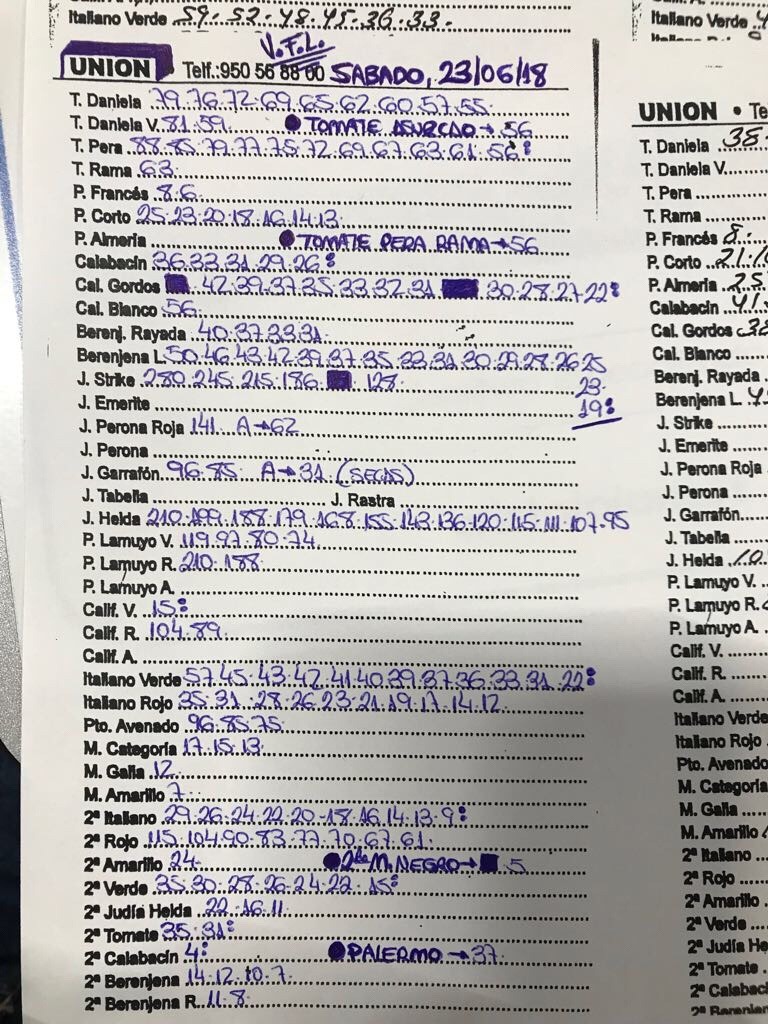 Italiano Verde 59.52.48.45.36.33.
V.F.L.
UNION Telf.:950 56 88 00 SABADO, 23/06/18
T. Daniela 79.76.72.69.65.62.60.57.55
T. Daniela V. 81.59 TOMATE ASURCAO→56
T. Pera 88.85.79.77.75.72.69.67.63.61.56:
T. Rama 63
P. Francés 8.6
P. Corto 25.23.20.18.16.14.13
P. Almería TOMATE PERA RAMA→56
Calabacín 36.33.31.29.26:
Cal. Gordos 42.39.37.35.33.32.31 30.28.27.22:
Cal. Blanco 56
Berenj. Rayada 40.37.33.31
Berenjena L. 50.46.43.42.39.37.35.33.31.30.29.28.26.25
23
19:
J. Strike 280.245.215.186 128
J. Emerite
J. Perona Roja 141 A→62
J. Perona
J. Garrafón 96.85 A→31 (SECAS)
J. Tabella J. Rastra
J. Helda 210.199.188.179.168.155.143.136.120.115.111.107.95
P. Lamuyo V. 119.97.80.74
P. Lamuyo R. 210.188
P. Lamuyo A.
Calif. V. 15:
Calif. R. 104.89
Calif. A.
Italiano Verde 57.45.43.42.41.40.39.37.36.33.31.22:
Italiano Rojo 35.31.28.26.23.21.19.17.14.12
Pto. Avenado 96.85.75
M. Categoría 17.15.13
M. Galia 12
M. Amarillo 7
2ª Italiano 29.26.24.22.20.18.16.14.13.9:
2ª Rojo 115.104.90.83.77.70.67.61
2ª Amarillo 24 2da M. NEGRO→ 5
2ª Verde 35.30.28.26.24.22.15:
2ª Judía Helda 22.16.11
2ª Tomate 35.31:
2ª Calabacín 4: PALERMO→37
2ª Berenjena 14.12.10.7
2ª Berenjena R. 11.8
Italiano Verde
UNION • Te
T. Daniela 38
T. Daniela V.
T. Pera
T. Rama
P. Francés 8
P. Corto 21
P. Almería 25
Calabacín 41
Cal. Gordos
Cal. Blanco
Berenj. Rayada
Berenjena L.
J. Strike
J. Emerite
J. Perona Roja
J. Perona
J. Garrafón
J. Tabella
J. Helda
P. Lamuyo V.
P. Lamuyo R.
P. Lamuyo A
Calif. V.
Calif. R.
Calif. A.
Italiano Verde
Italiano Rojo
Pto. Avenado
M. Categoría
M. Galia
M. Amarillo
2ª Italiano
2ª Rojo
2ª Amarillo
2ª Verde
2ª Judía He
2ª Tomate
2ª Calabací